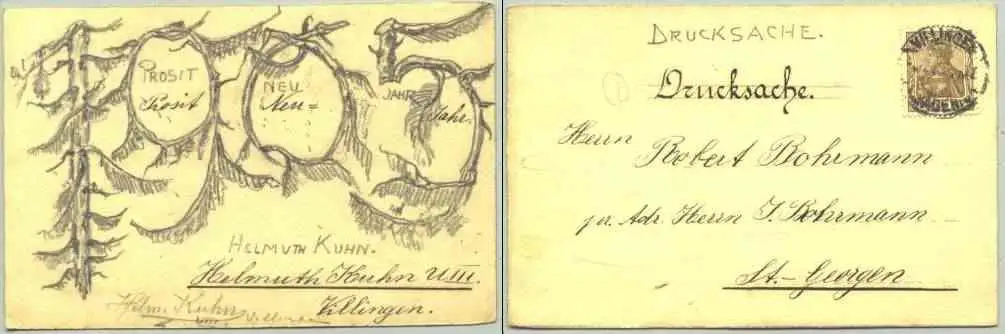 PROSIT
Prosit
NEU
Neu=
JAHR
Jahr.
HELMUTH KUHN.
Helmuth Kuhn UIII.
Villingen.
Helm. Kuhn
UIII. Villingen
DRUCKSACHE.
Drucksache.
Herrn
Robert Bohrmann
pr. Adr. Herrn J. Bohrmann
St. Georgen
VILLINGEN